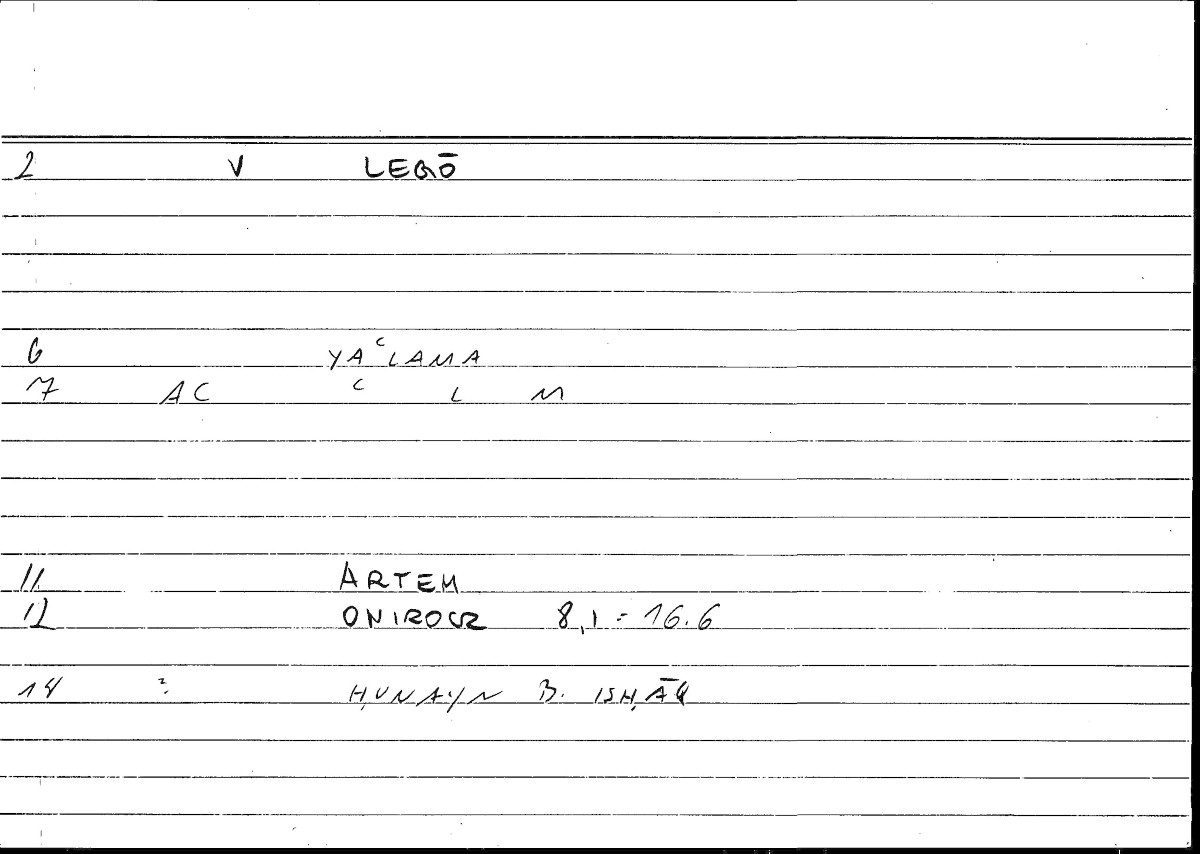 2 V LEGŌ
6 YAʿLAMA
7 AC ʿ L M
11 ARTEM
12 ONIROCR 8,1 = 16.6
14 ? ḤUNAYN B. ISḤĀQ